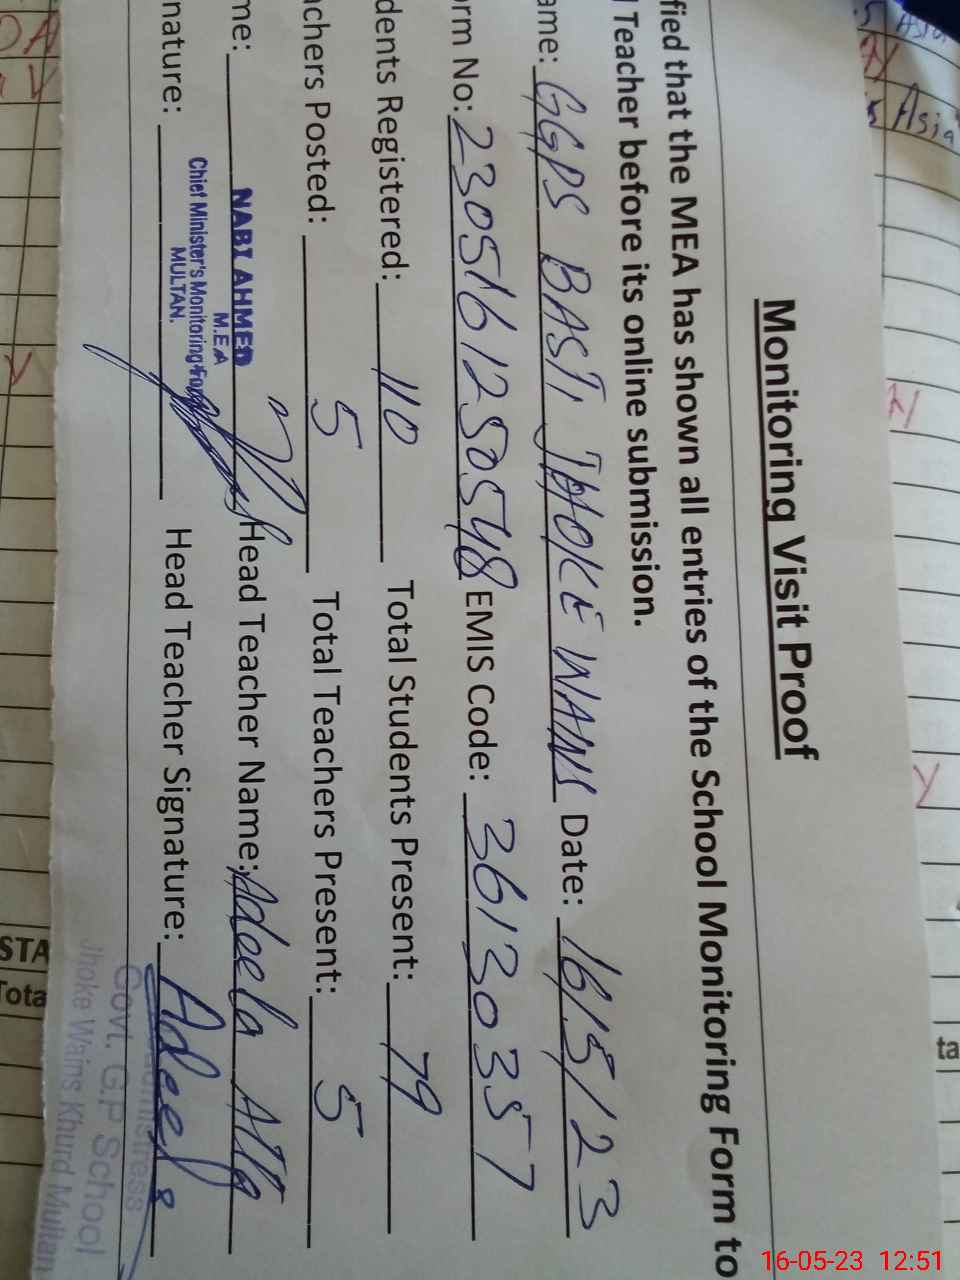 Monitoring Visit Proof
fied that the MEA has shown all entries of the School Monitoring Form to
Teacher before its online submission.
ame: GGPS BASTI JHOKE WANS Date: 16/5/23
orm No: 2305161250548 EMIS Code: 36130357
dents Registered: 110 Total Students Present: 79
chers Posted: 5 Total Teachers Present: 5
me: NABI AHMED Head Teacher Name: Adeela Atta
M.E.A
Chief Minister's Monitoring Force
MULTAN.
nature: Head Teacher Signature: Adeela
Govt. G.P School
Jhoke Wains Khurd Multan
STA
Tota
ta
Asia
16-05-23 12:51